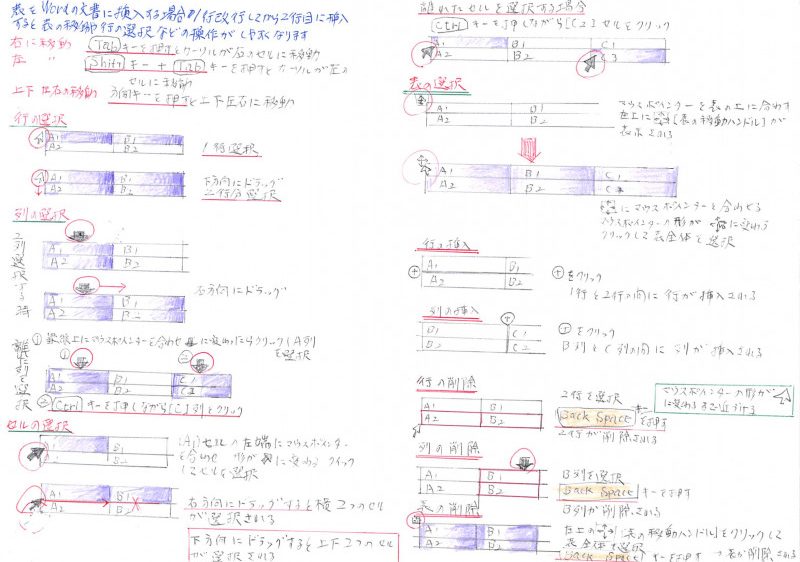 表をWordの文書に挿入する場合1行改行してから2行目に挿入
すると表の移動や行の選択などの操作がしやすくなります
右に移動 Tabキーを押すとカーソルが右のセルに移動
左 〃 Shiftキー+Tabキーを押すとカーソルが左の
セルに移動
上下左右の移動 方向キーを押すと上下左右に移動
行の選択
A1 B1
A2 B2
1行選択
A1 B1
A2 B2
下方向にドラッグ
二行分選択
列の選択
A1 B1
A2 B2
A1 B1
A2 B2
右方向にドラッグ
① マウスポインターを合わせ に変わったらクリック(A列
を選択
① ②
A1 B1 C1
A2 B2 C2
② Ctrlキーを押しながら[C]列をクリック
セルの選択
A1 B1
A2 B2
(A1)セルの左端にマウスポインター
を合わせ 形が に変わる クイック
してセルを選択
A1 B1
A2 B2
右方向にドラッグすると横2つのセル
が選択される
下方向にドラッグすると上下2つのセル
が選択される
離れたセルを選択する場合
Ctrlキーを押しながら[C2]セルをクリック
A1 B1 C1
A2 B2 C3
表の選択
A1 B1
A2 B2
マウスポインターを表の上に合わす
左上に [表の移動ハンドル]が
表示される
A1 B1 C1
A2 B2
にマウスポインターを合わせる
マウスポインターの形が に変わる
クリックして表全体を選択
行の挿入
A1 B1
A2 B2
⊕をクリック
1行と2行の間に行が挿入される
列の挿入
B1 C1
B2 C2
をクリック
B列とC列の間に列が挿入される
行の削除
A1 B1
A2 B2
2行を選択
Back Spaceキーを押す
2行が削除される
マウスポインターの形が
に変わるまで近づける
列の削除
A1 B1
A2 B2
B列を選択
Back Spaceキーを押す
B列が削除される
表の削除
A1 B1
A2 B2
左上の [表の移動ハンドル]をクリックして
表全体を選択
Back Spaceキーを押す 表が削除される